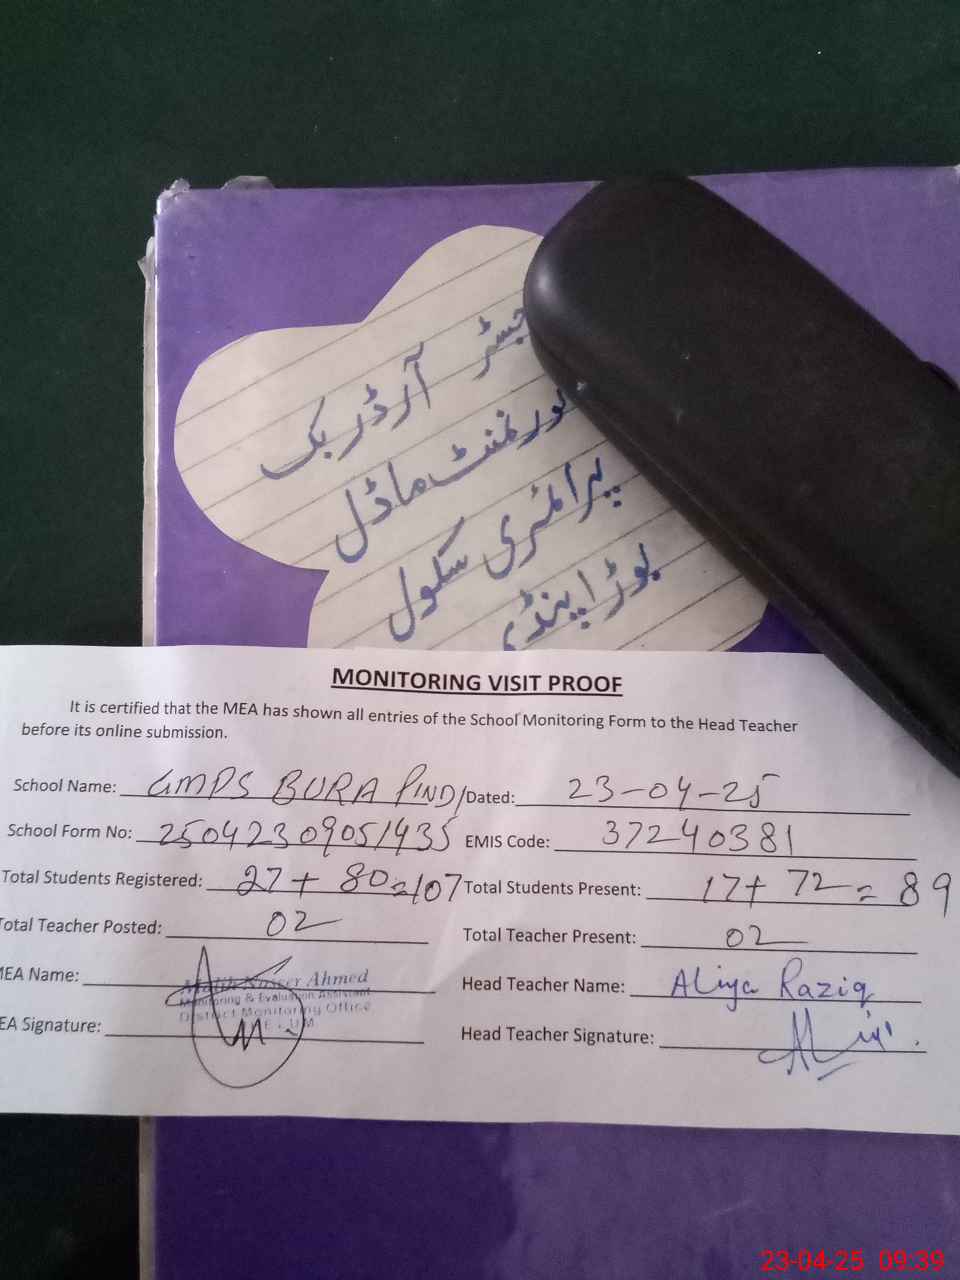 جسٹر آرڈر بک
ورنمنٹ ماڈل
پرائمری سکول
بوڑا پنڈ
MONITORING VISIT PROOF
It is certified that the MEA has shown all entries of the School Monitoring Form to the Head Teacher
before its online submission.
School Name: GMPS BURA PIND/ Dated: 23-04-25
School Form No: 25042309051435 EMIS Code: 37240381
Total Students Registered: 27 + 80 = 107 Total Students Present: 17 + 72 = 89
Total Teacher Posted: 02 Total Teacher Present: 02
MEA Name: Malik Naseer Ahmed Head Teacher Name: Aliya Raziq
Monitoring & Evaluation Assistant
District Monitoring Office
EA Signature: Head Teacher Signature:
23-04-25 09:39